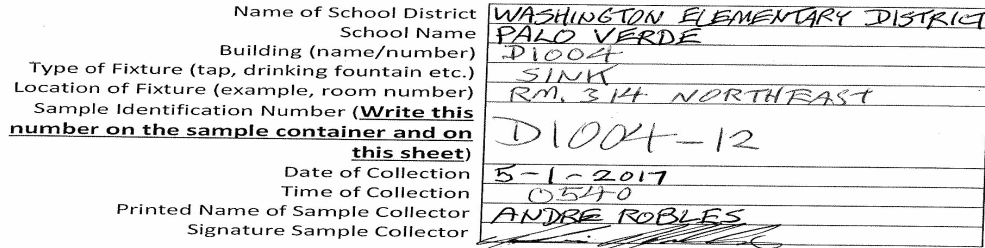 Name of School District WASHINGTON ELEMENTARY DISTRICT
School Name PALO VERDE
Building (name/number) D1004
Type of Fixture (tap, drinking fountain etc.) SINK
Location of Fixture (example, room number) RM. 314 NORTHEAST
Sample Identification Number (Write this
number on the sample container and on D1004-12
this sheet)
Date of Collection 5-1-2017
Time of Collection 0540
Printed Name of Sample Collector ANDRE ROBLES
Signature Sample Collector